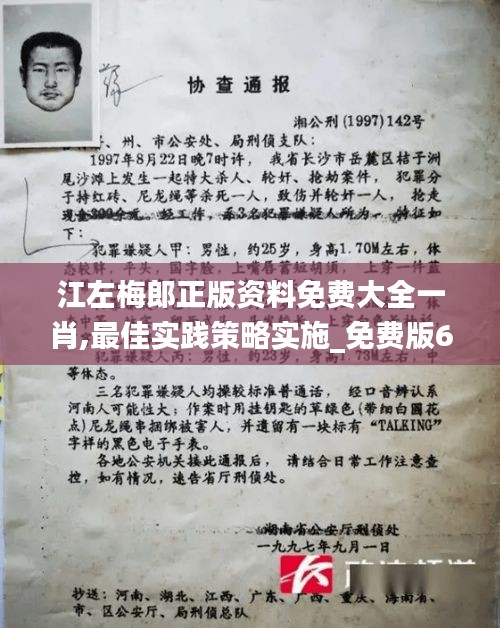 协查通报
湘公刑(1997)142号
州、市公安处、局刑侦支队：
1997年8月22日晚7时许，我省长沙市岳麓区桔子洲
尾沙滩上发生一起特大杀人、轮奸、抢劫案件，犯罪分
子持红砖、尼龙绳等杀死一人，致伤并轮奸一人，抢走
现金300余元。经工作，系3名犯罪嫌疑人所为，特征如
下：
犯罪嫌疑人甲：男性，约25岁，身高1.70M左右，体
江左梅郎正版资料免费大全一
肖,最佳实践策略实施_免费版6
等体态。
三名犯罪嫌疑人均操较标准普通话，经口音辨认系
河南人可能性大；作案时用挂钥匙的草绿色(带细白圆花
点)尼龙绳串捆绑被害人，并遗留有一块标有“TALKING”
字样的黑色电子手表。
各地公安机关接此通报后，请结合日常工作注意查
控，如有情况，速告省厅刑侦处。
湖南省公安厅刑侦处
一九九七年九月一日
抄送：河南、湖北、江西、广东、广西、重庆、海南省、
市、区公安厅、局刑侦总队